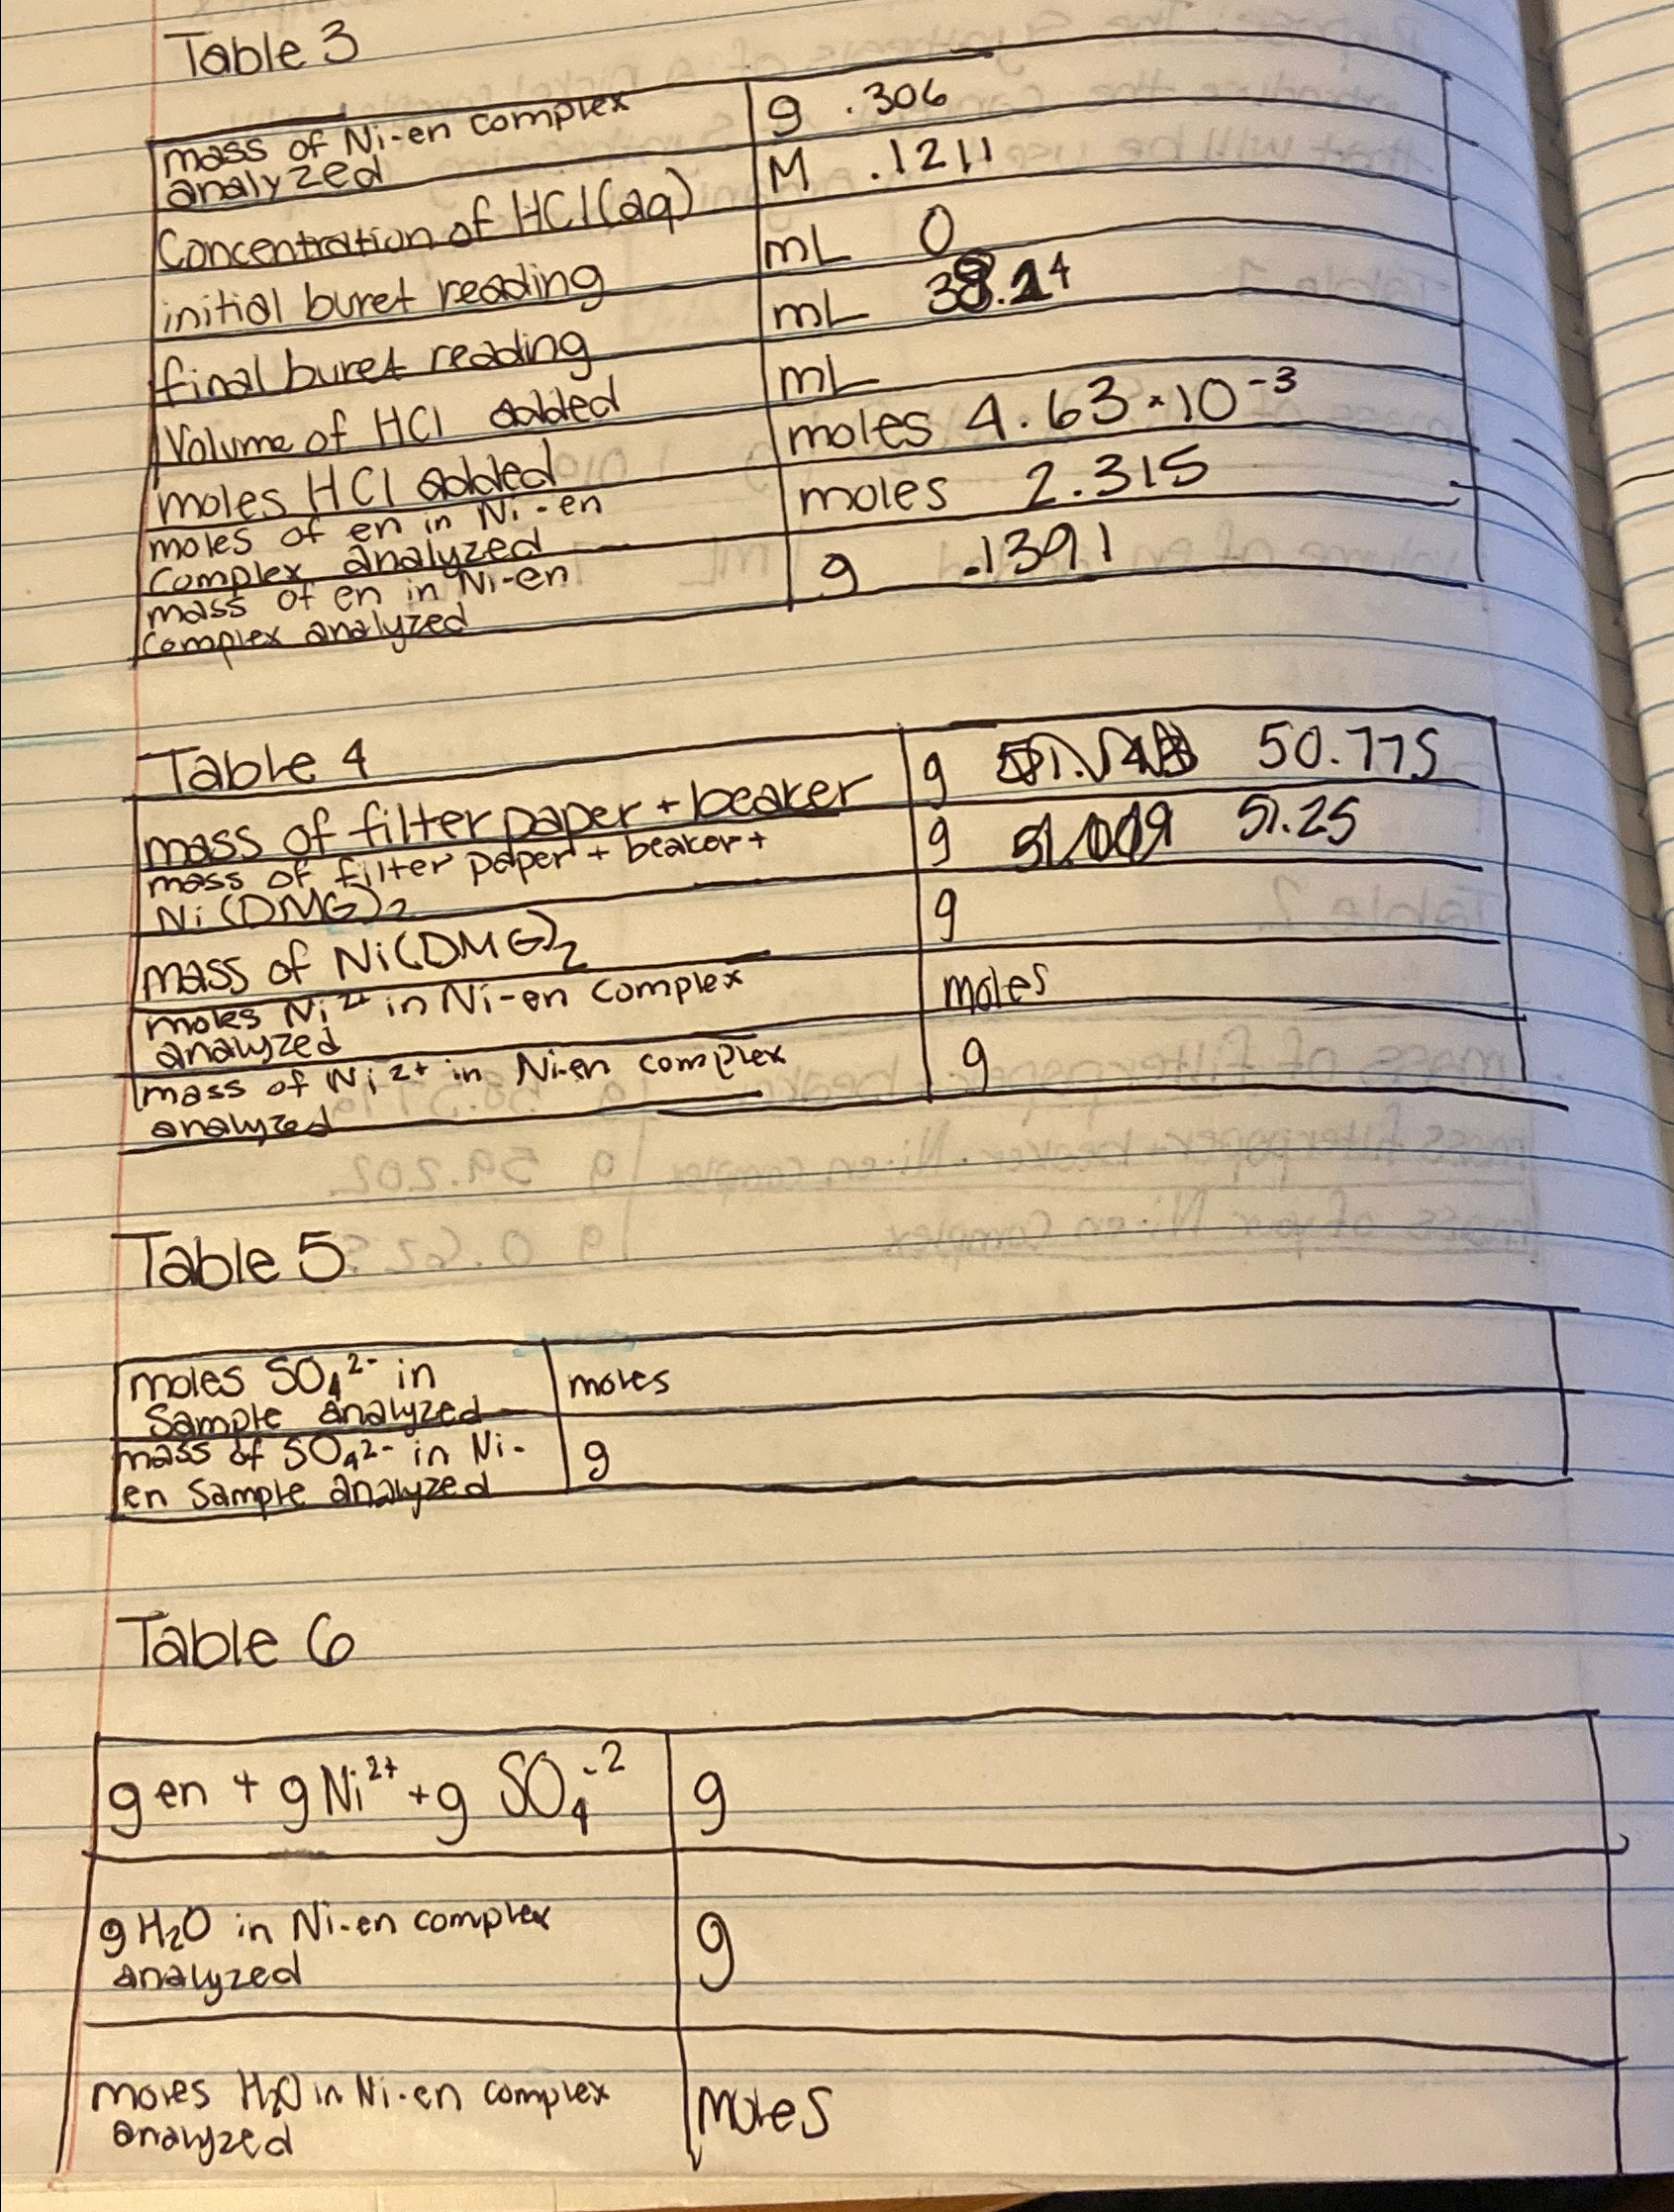 Table 3
mass of Ni-en complex
analyzed
g .306
Concentration of HCl(aq)
M .1211
initial buret reading
mL 0
final buret reading
mL 38.24
Volume of HCl added
mL
moles HCl added
moles 4.63 · 10⁻³
moles of en in Ni-en
complex analyzed
moles 2.315
mass of en in Ni-en
complex analyzed
g .1391
Table 4
mass of filter paper + beaker
g 50.775
mass of filter paper + beaker +
Ni(DMG)₂
g 51.25
mass of Ni(DMG)₂
g
moles Ni²⁺ in Ni-en complex
analyzed
moles
mass of Ni²⁺ in Ni-en complex
analyzed
g
Table 5
moles SO₄²⁻ in
Sample analyzed
moles
mass of SO₄²⁻ in Ni-
en Sample analyzed
g
Table 6
g en + g Ni²⁺ + g SO₄⁻²
g
g H₂O in Ni-en complex
analyzed
g
moles H₂O in Ni-en complex
analyzed
moles